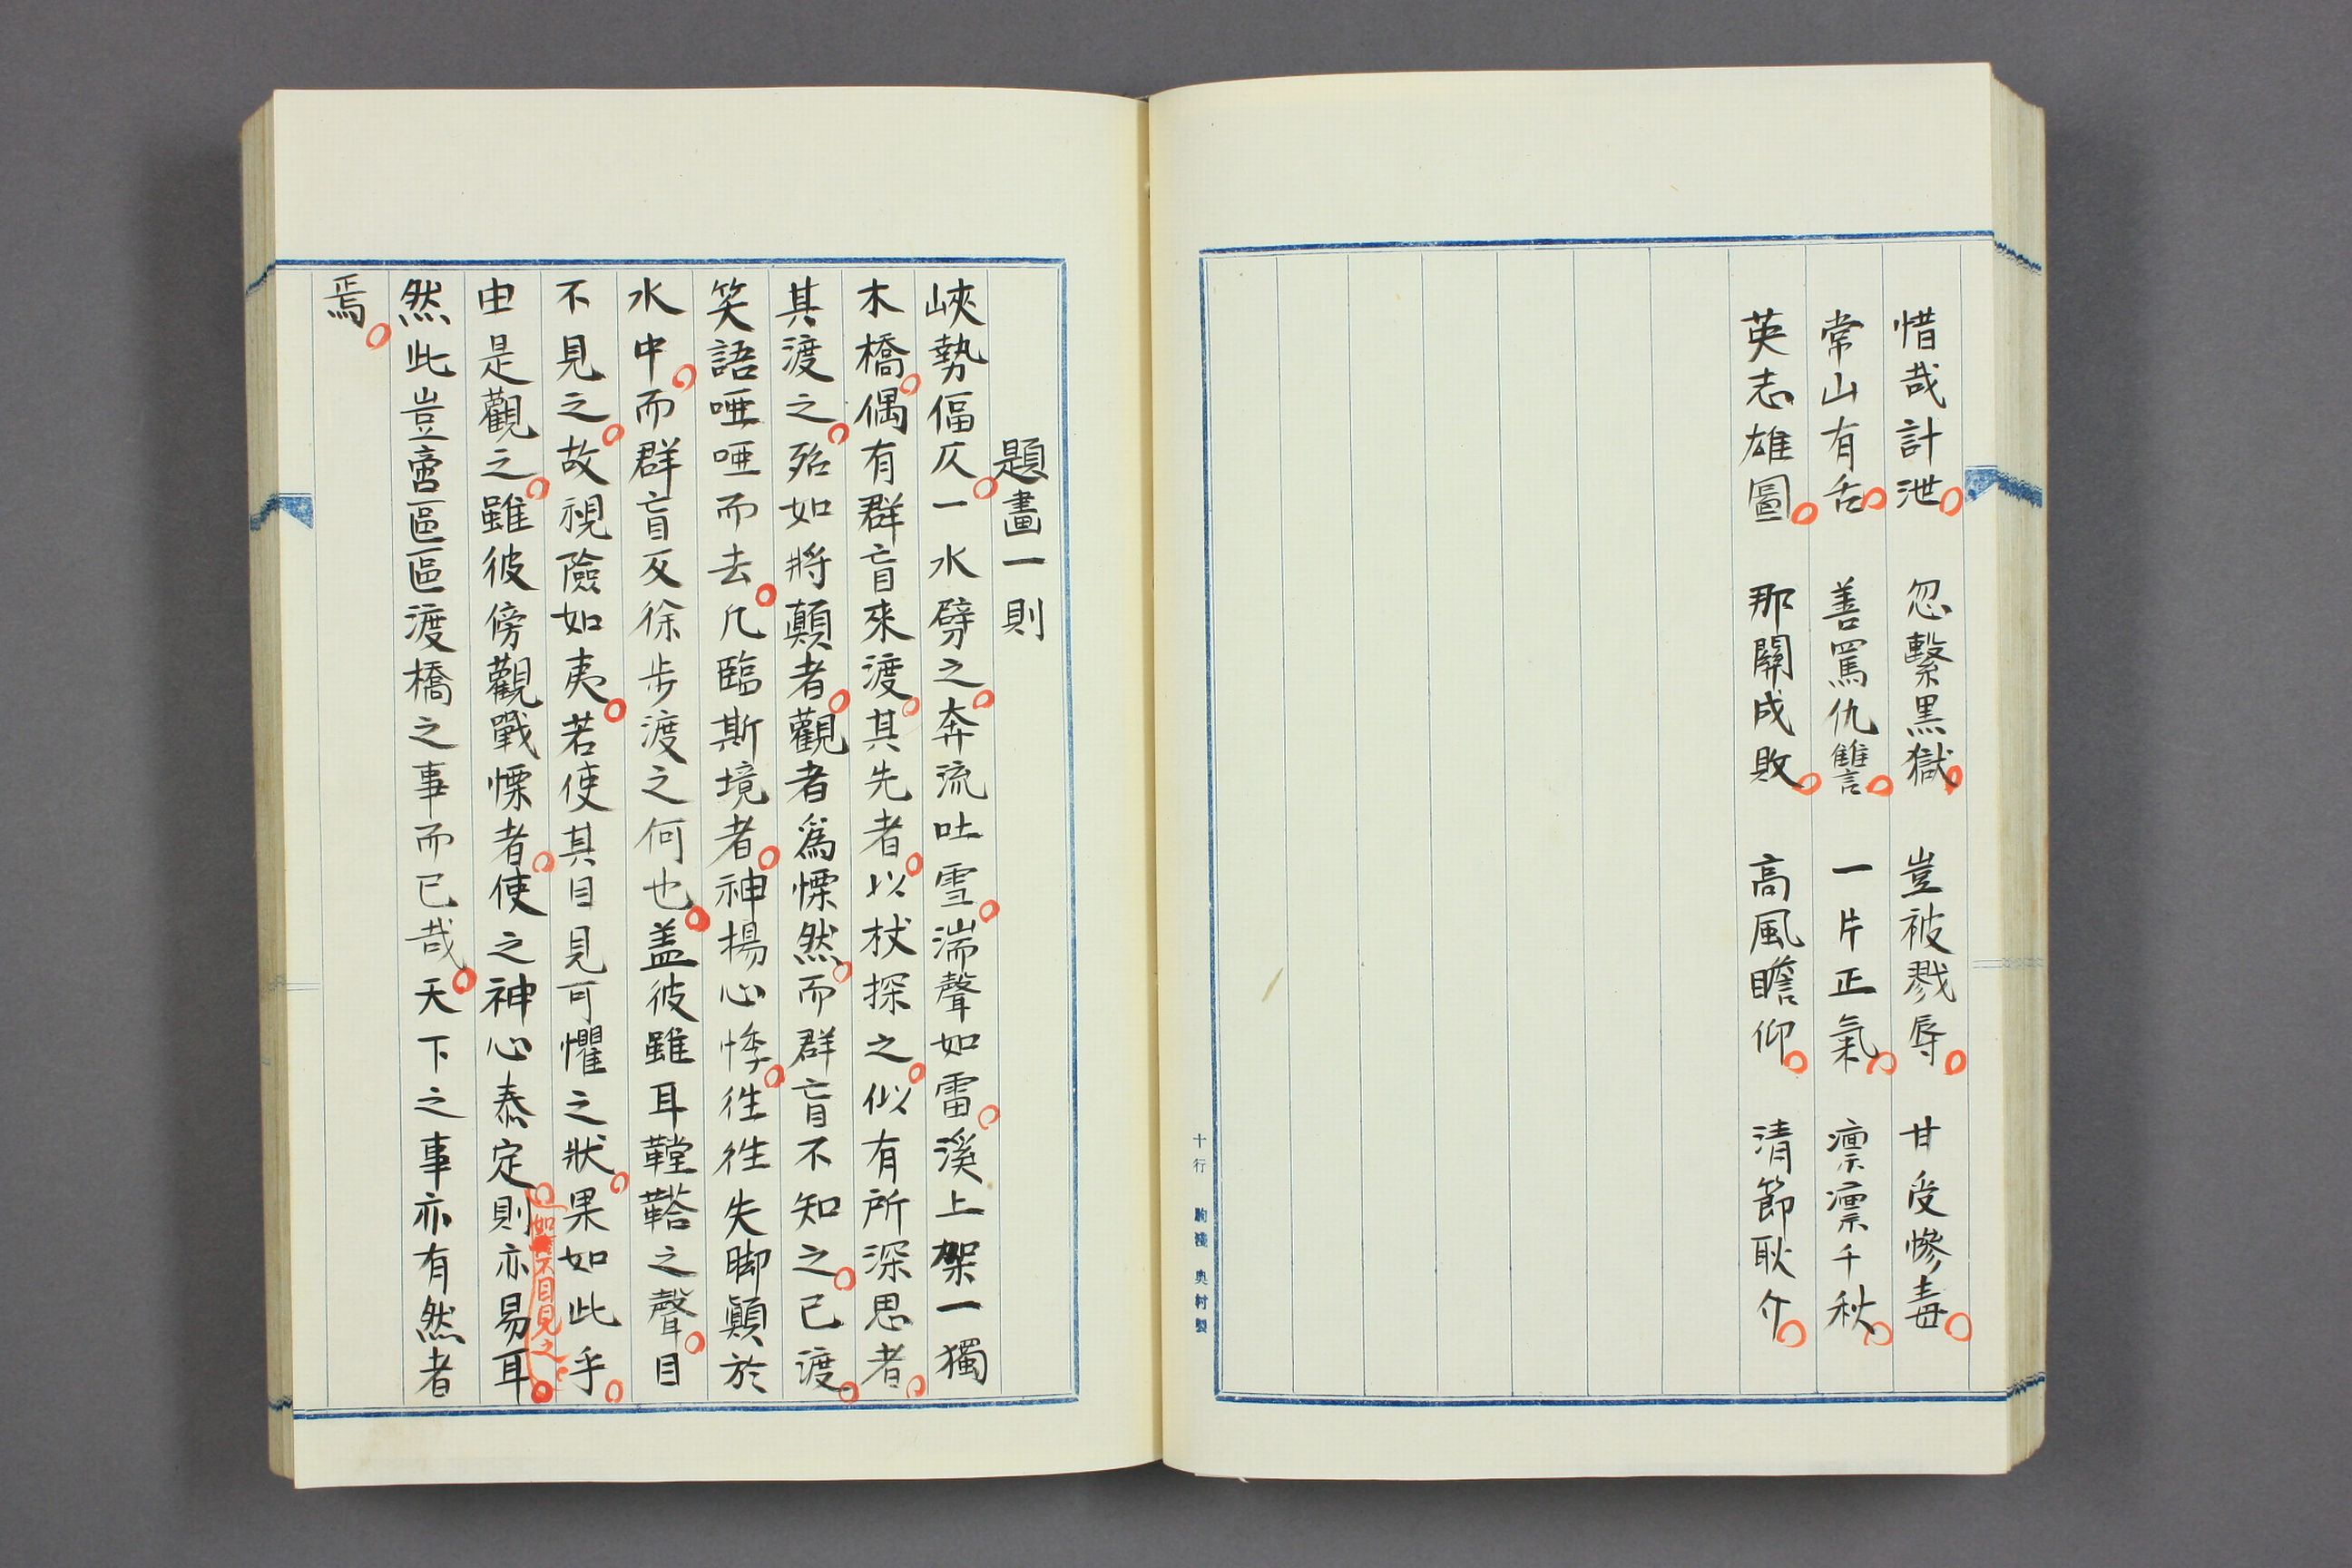 惜哉計泄 忽繫黑獄 豈被戮辱 甘受慘毒
常山有舌 善罵仇讐 一片正氣 凛凛千秋
英志雄圖 那關成敗 高風瞻仰 清節耿介
十行 奥村製
題畫一則
峽勢偪仄一水劈之奔流吐雪湍聲如雷溪上架一獨
木橋偶有群盲來渡其先者以杖探之似有所深思者
其渡之殆如將顛者觀者爲慄然而群盲不知之已渡
笑語唖唖而去凡臨斯境者神楊心悸徃徃失脚顛於
水中而群盲反徐步渡之何也盖彼雖耳鞺鞳之聲目
不見之故視險如夷若使其目見可懼之狀果如此乎
如不目見之
由是觀之雖彼傍觀戰慄者使之神心泰定則亦易耳
然此豈啻區區渡橋之事而已哉天下之事亦有然者
焉